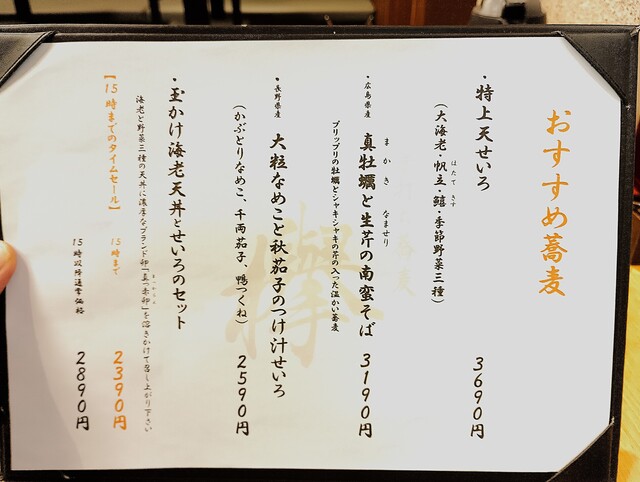 おすすめ蕎麦
・特上天せいろ 3690円
(大海老・帆立・鱚・季節野菜三種)
ほたて
きす
・広島県産 真牡蠣と生芹の南蛮そば 3190円
まかき
なませり
プリップリの牡蠣とシャキシャキの芹の入った温かい蕎麦
・長野県産 大粒なめこと秋茄子のつけ汁せいろ
(かぶとりなめこ、千両茄子、鴨つくね) 2590円
・玉かけ海老天丼とせいろのセット
海老と野菜三種の天丼に濃厚なブランド卵「真っ赤卵」を溶きかけて召し上がり下さい
【15時までのタイムセール】
15時まで 2390円
15時以降通常価格 2890円
欅